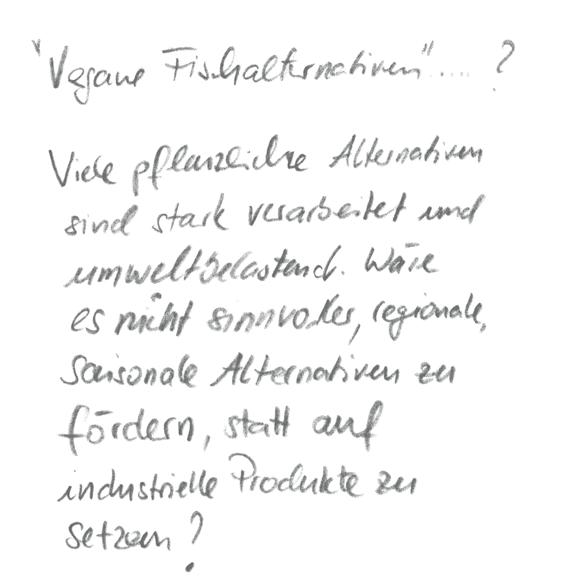 "Vegane Fischalternativen".... ?
Viele pflanzliche Alternativen
sind stark verarbeitet und
umweltbelastend. Wäre
es nicht sinnvoller, regionale,
saisonale Alternativen zu
fördern, statt auf
industrielle Produkte zu
setzen?